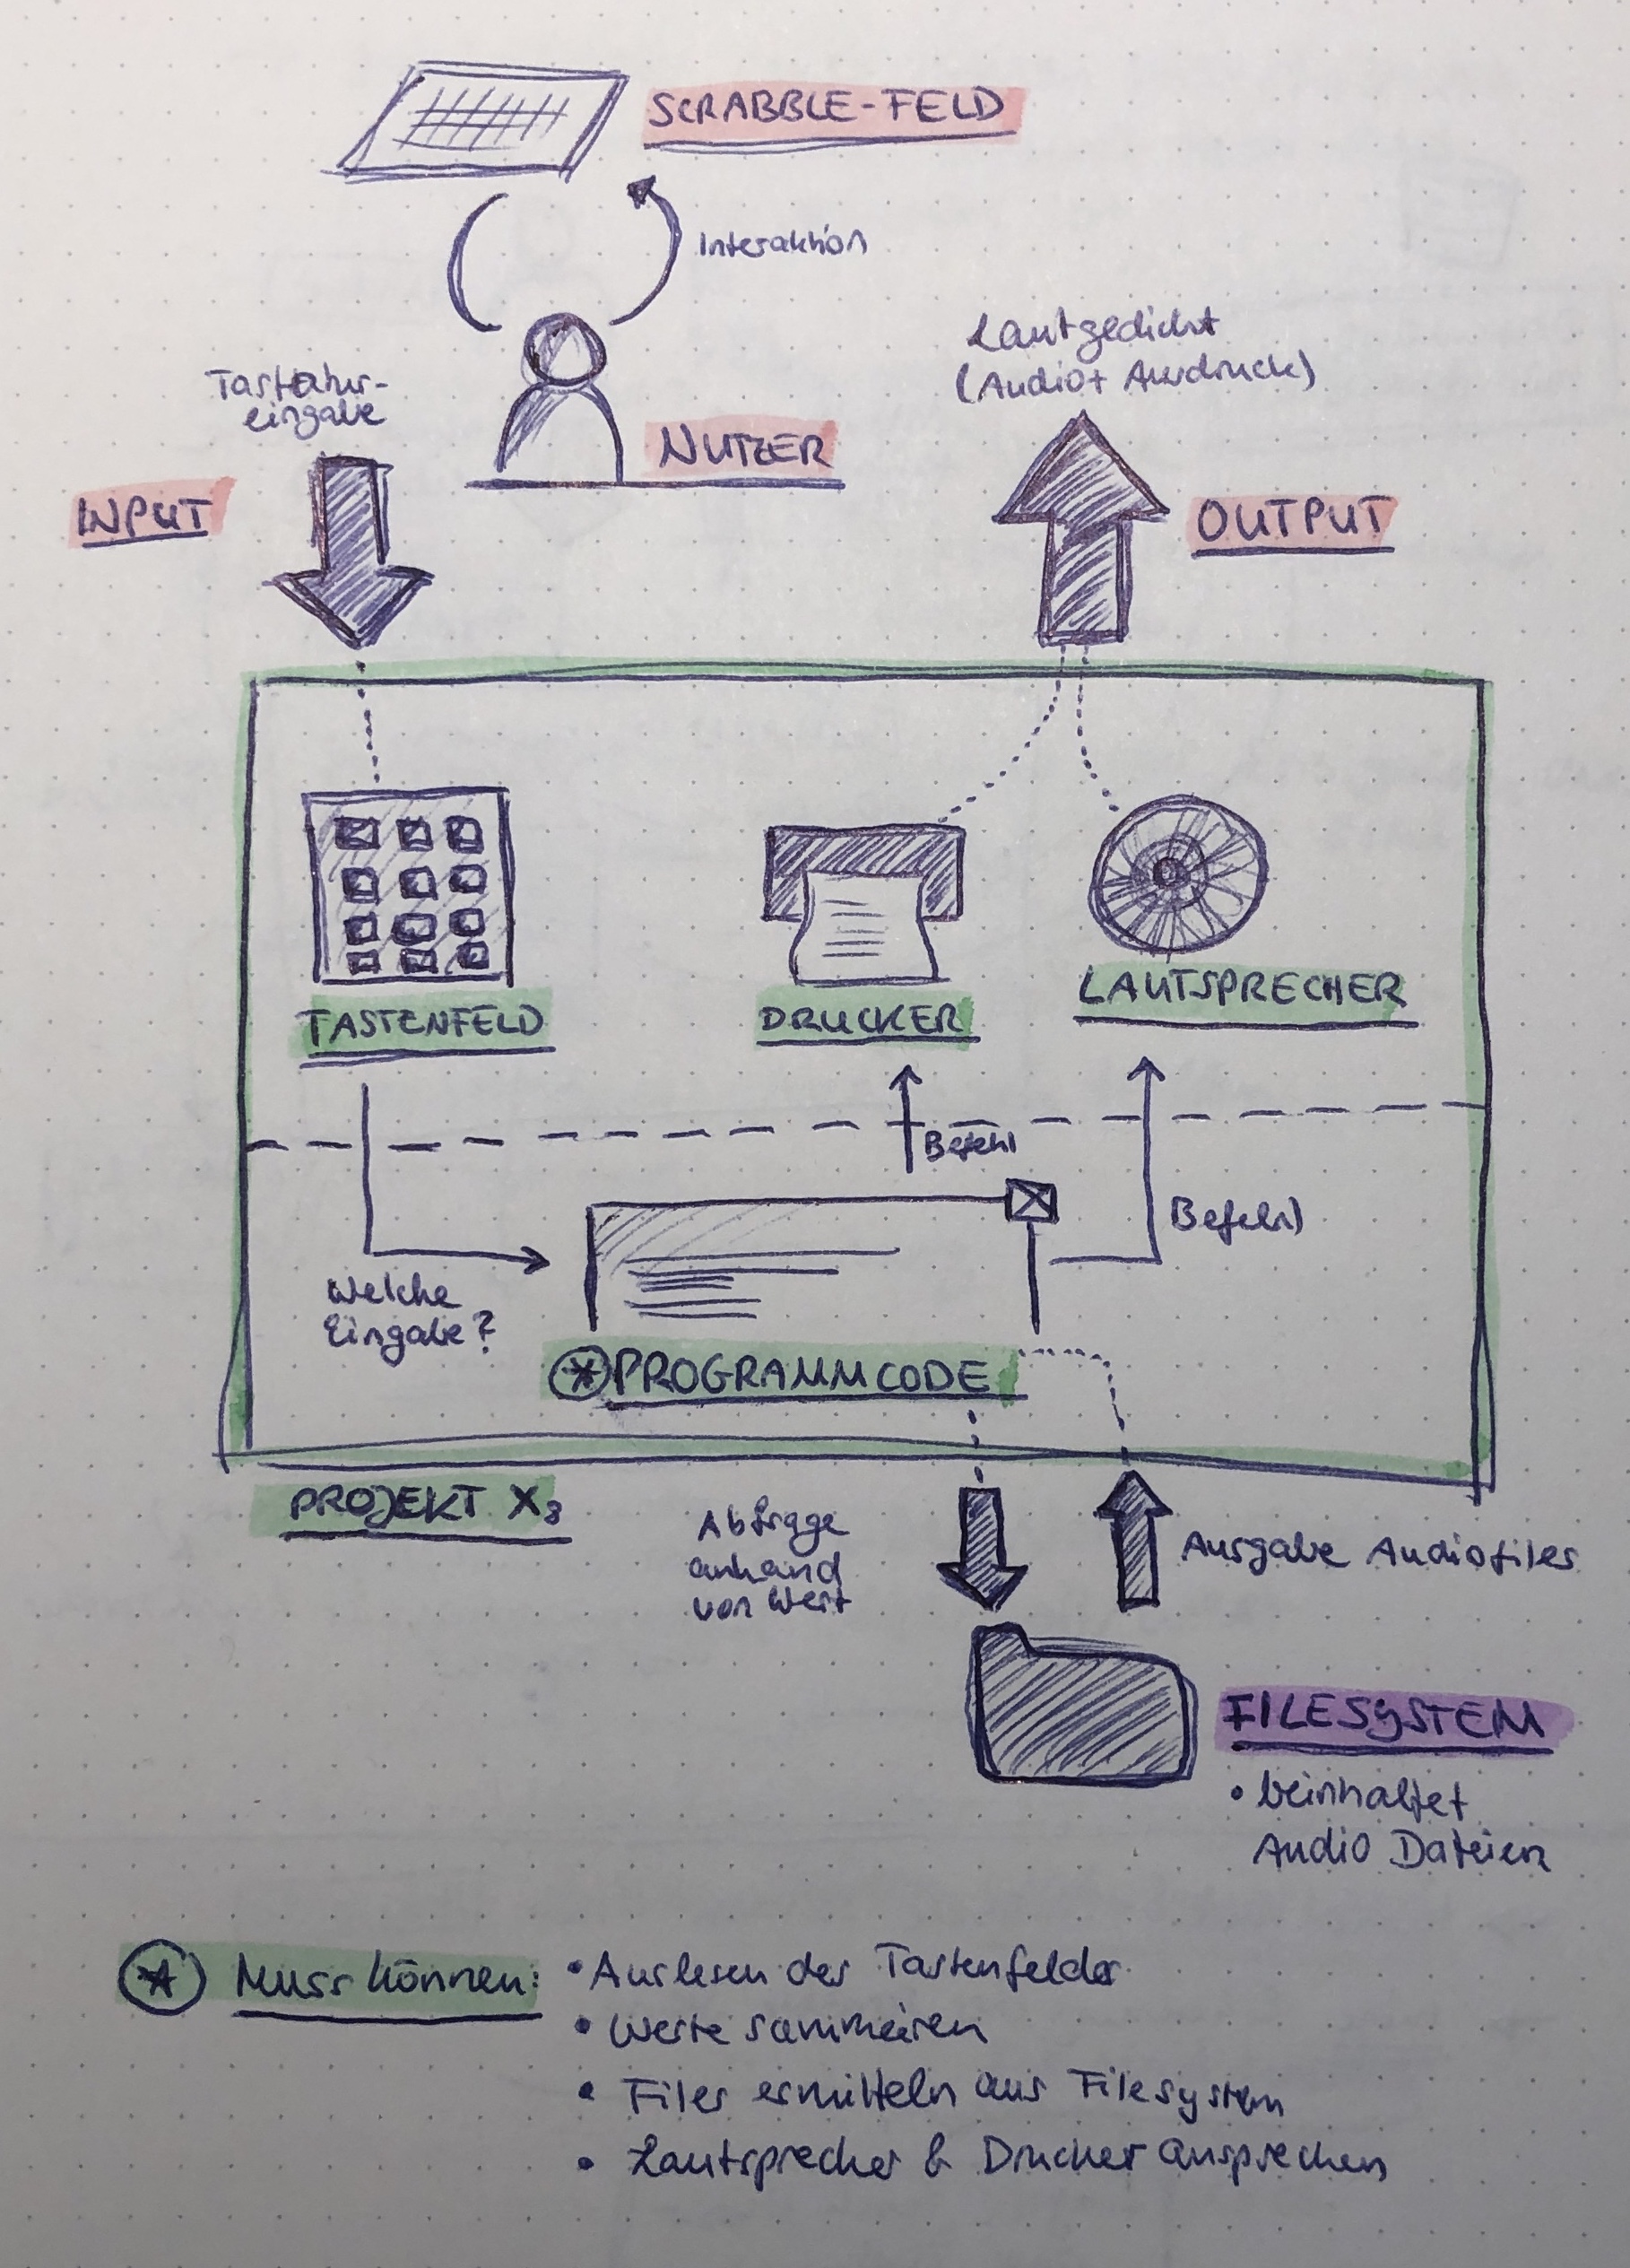 SCRABBLE-FELD
Interaktion
Lautgedicht
(Audio+ Ausdruck)
Tastatur-
eingabe
NUTZER
INPUT
OUTPUT
TASTENFELD
DRUCKER
LAUTSPRECHER
Befehl
Befehl
Welche
Eingabe?
PROGRAMMCODE
PROJEKT X3
Abfrage
anhand
von Wert
Ausgabe Audiofiles
FILESYSTEM
• beinhaltet
Audio Dateien
Muss können:
• Auslesen der Tastenfelder
• Werte summieren
• Files ermitteln aus Filesystem
• Lautsprecher & Drucker ansprechen